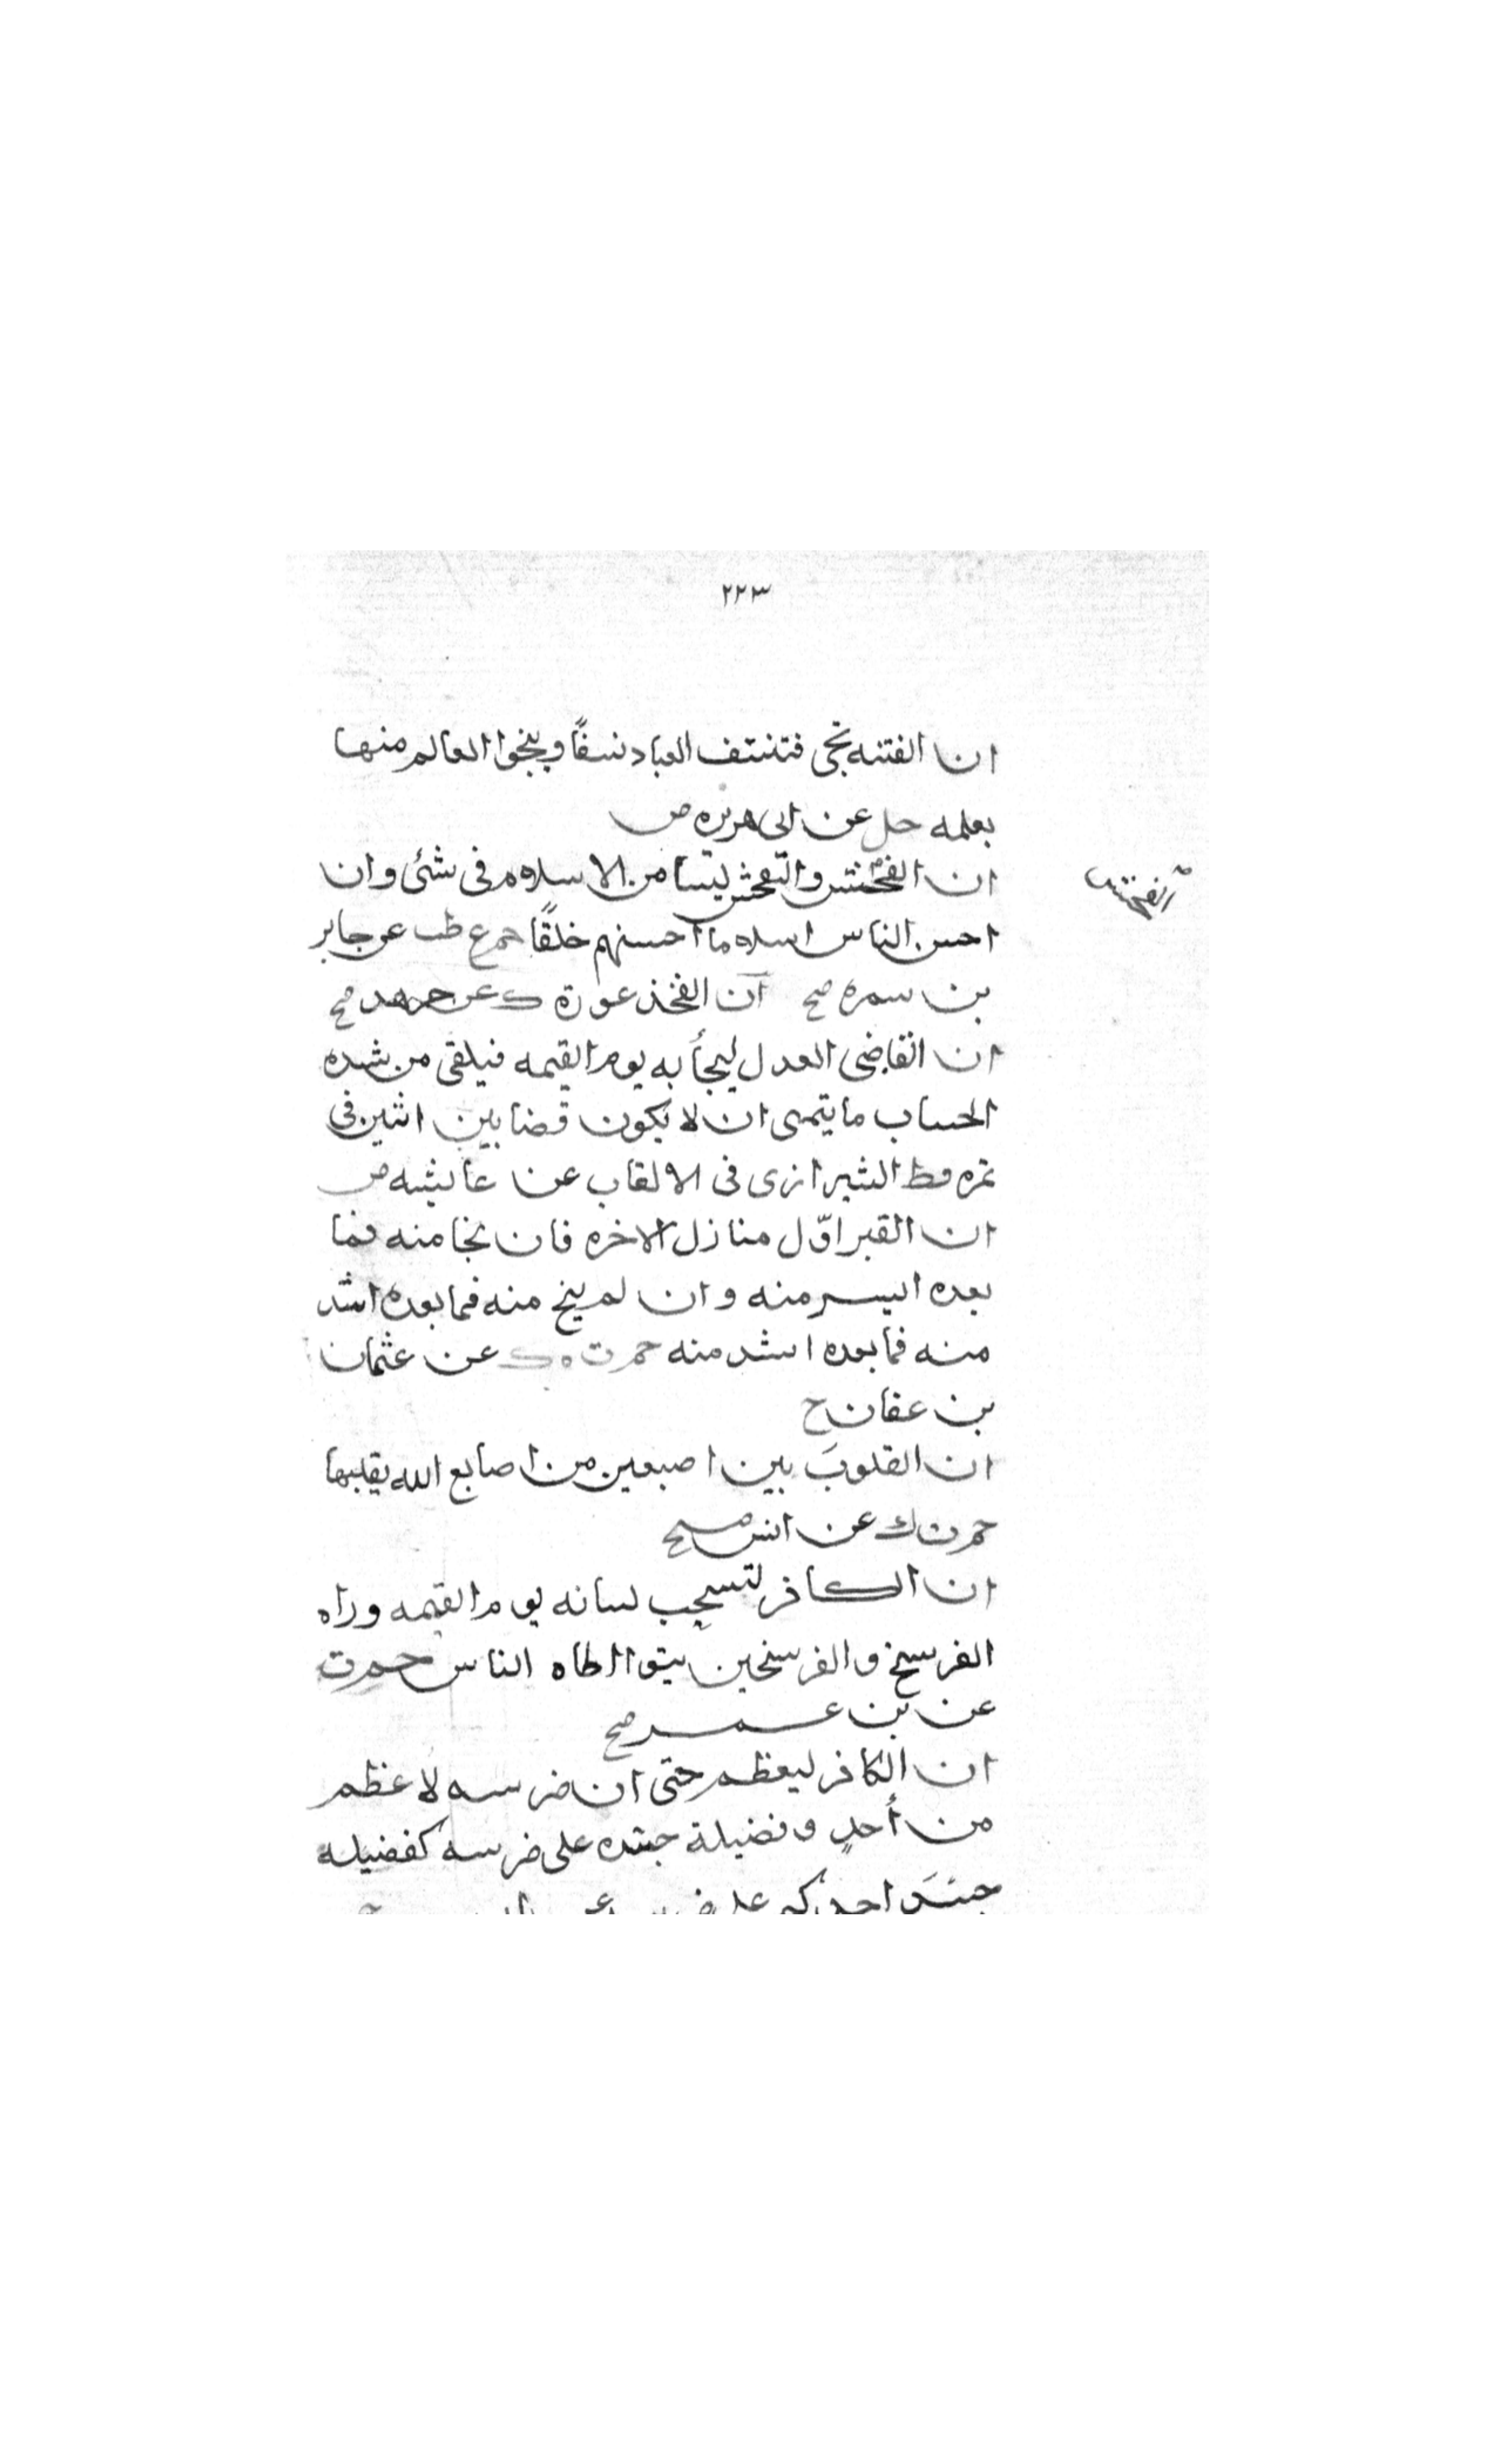 ٢٢٣
ان الفتنه تجى فتنتف العباد نسفًا وينجوا العالم منها
بعلمه حل عن ابى هريره ض
ان الفحش والتفحش ليسا من الاسلام فى شئى وان
الفحش
احسن الناس اسلاما احسنهم خلقًا حم ع طب عن جابر
بن سمره صح ان الفخذ عورة ك عن جرهد صح
ان القاضى العدل ليجأ به يوم القيمه فيلقى من شده
الحساب ما يتمنى ان لا يكون قضا بين اثنين فى
تمره قط الشيرازى فى الالقاب عن عايشه ض
ان القبر اوّل منازل الاخره فان نجا منه فما
بعده ايسر منه وان لم ينج منه فما بعده اشد
منه فما بعده اشد منه حم ت ه ك عن عثمان
بن عفان ح
ان القلوبَ بين اصبعين من اصابع الله يقلبها
حم ت ك عن انس صح
ان الكافر لتسحب لسانه يوم القيمه وراه
الفرسخ والفرسخين يتوااطاه الناس حم ت
عن بن عمر صح
ان الكافر ليعظم حتى ان ضرسه لاعظم
من أحدٍ وفضيلة جسده على ضرسه كفضيله
جسَد احدكم على